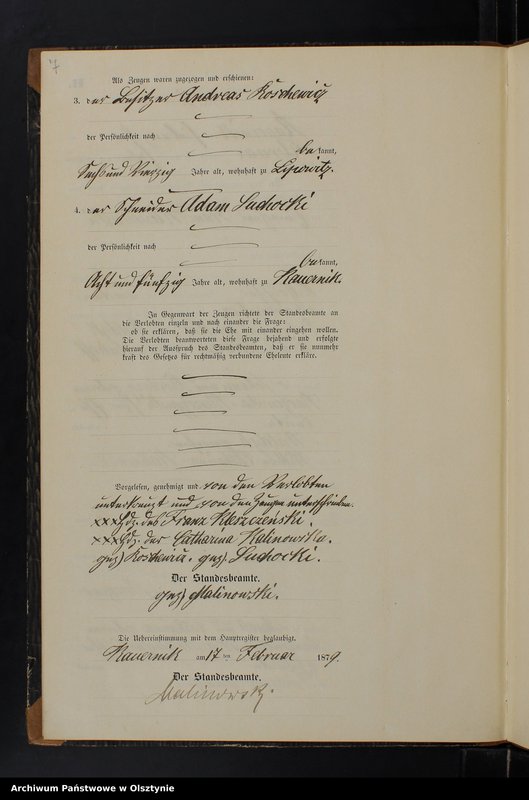 7
Als Zeugen waren zugezogen und erschienen:
3. der Besitzer Andreas Koschewicz
der Persönlichkeit nach
bekannt,
Sechs und Vierzig Jahre alt, wohnhaft zu Lipowitz.
4. der Schneider Adam Suchocki
der Persönlichkeit nach
bekannt,
Acht und fünfzig Jahre alt, wohnhaft zu Kauernik.
In Gegenwart der Zeugen richtete der Standesbeamte an
die Verlobten einzeln und nach einander die Frage:
ob sie erklären, daß sie die Ehe mit einander eingehen wollen.
Die Verlobten beantworteten diese Frage bejahend und erfolgte
hierauf der Ausspruch des Standesbeamten, daß er sie nunmehr
kraft des Gesetzes für rechtmäßig verbundene Eheleute erkläre.
Vorgelesen, genehmigt und von den Verlobten
unterkreuzt und von den Zeugen unterschrieben.
xxx Hdz. des Franz Kleszczeński.
xxx Hdz. der Catharina Kalinowska.
gez) Koschewicz. gez) Suchocki.
Der Standesbeamte.
gez) Malinowski.
Die Uebereinstimmung mit dem Hauptregister beglaubigt.
Kauernik am 17 ten Februar 1879.
Der Standesbeamte.
Malinowski.
Archiwum Państwowe w Olsztynie